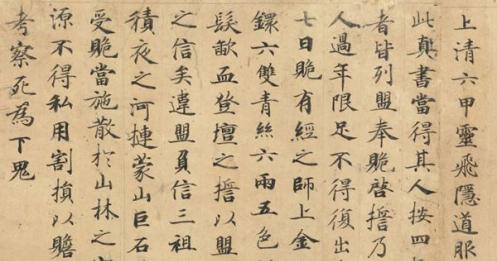 上清六甲靈飛隱道服
此真書當得其人按四
者皆列盟奉賝啓誓乃
人過年限足不得復出
七日賝有經之師上金
鐶六雙青絲六兩五色
髮歃血登壇之誓以盟
之信矣違盟負信三祖
積夜之河摙蒙山巨石
受賝當施散於山林之
源不得私用割損以贍
考察死為下鬼